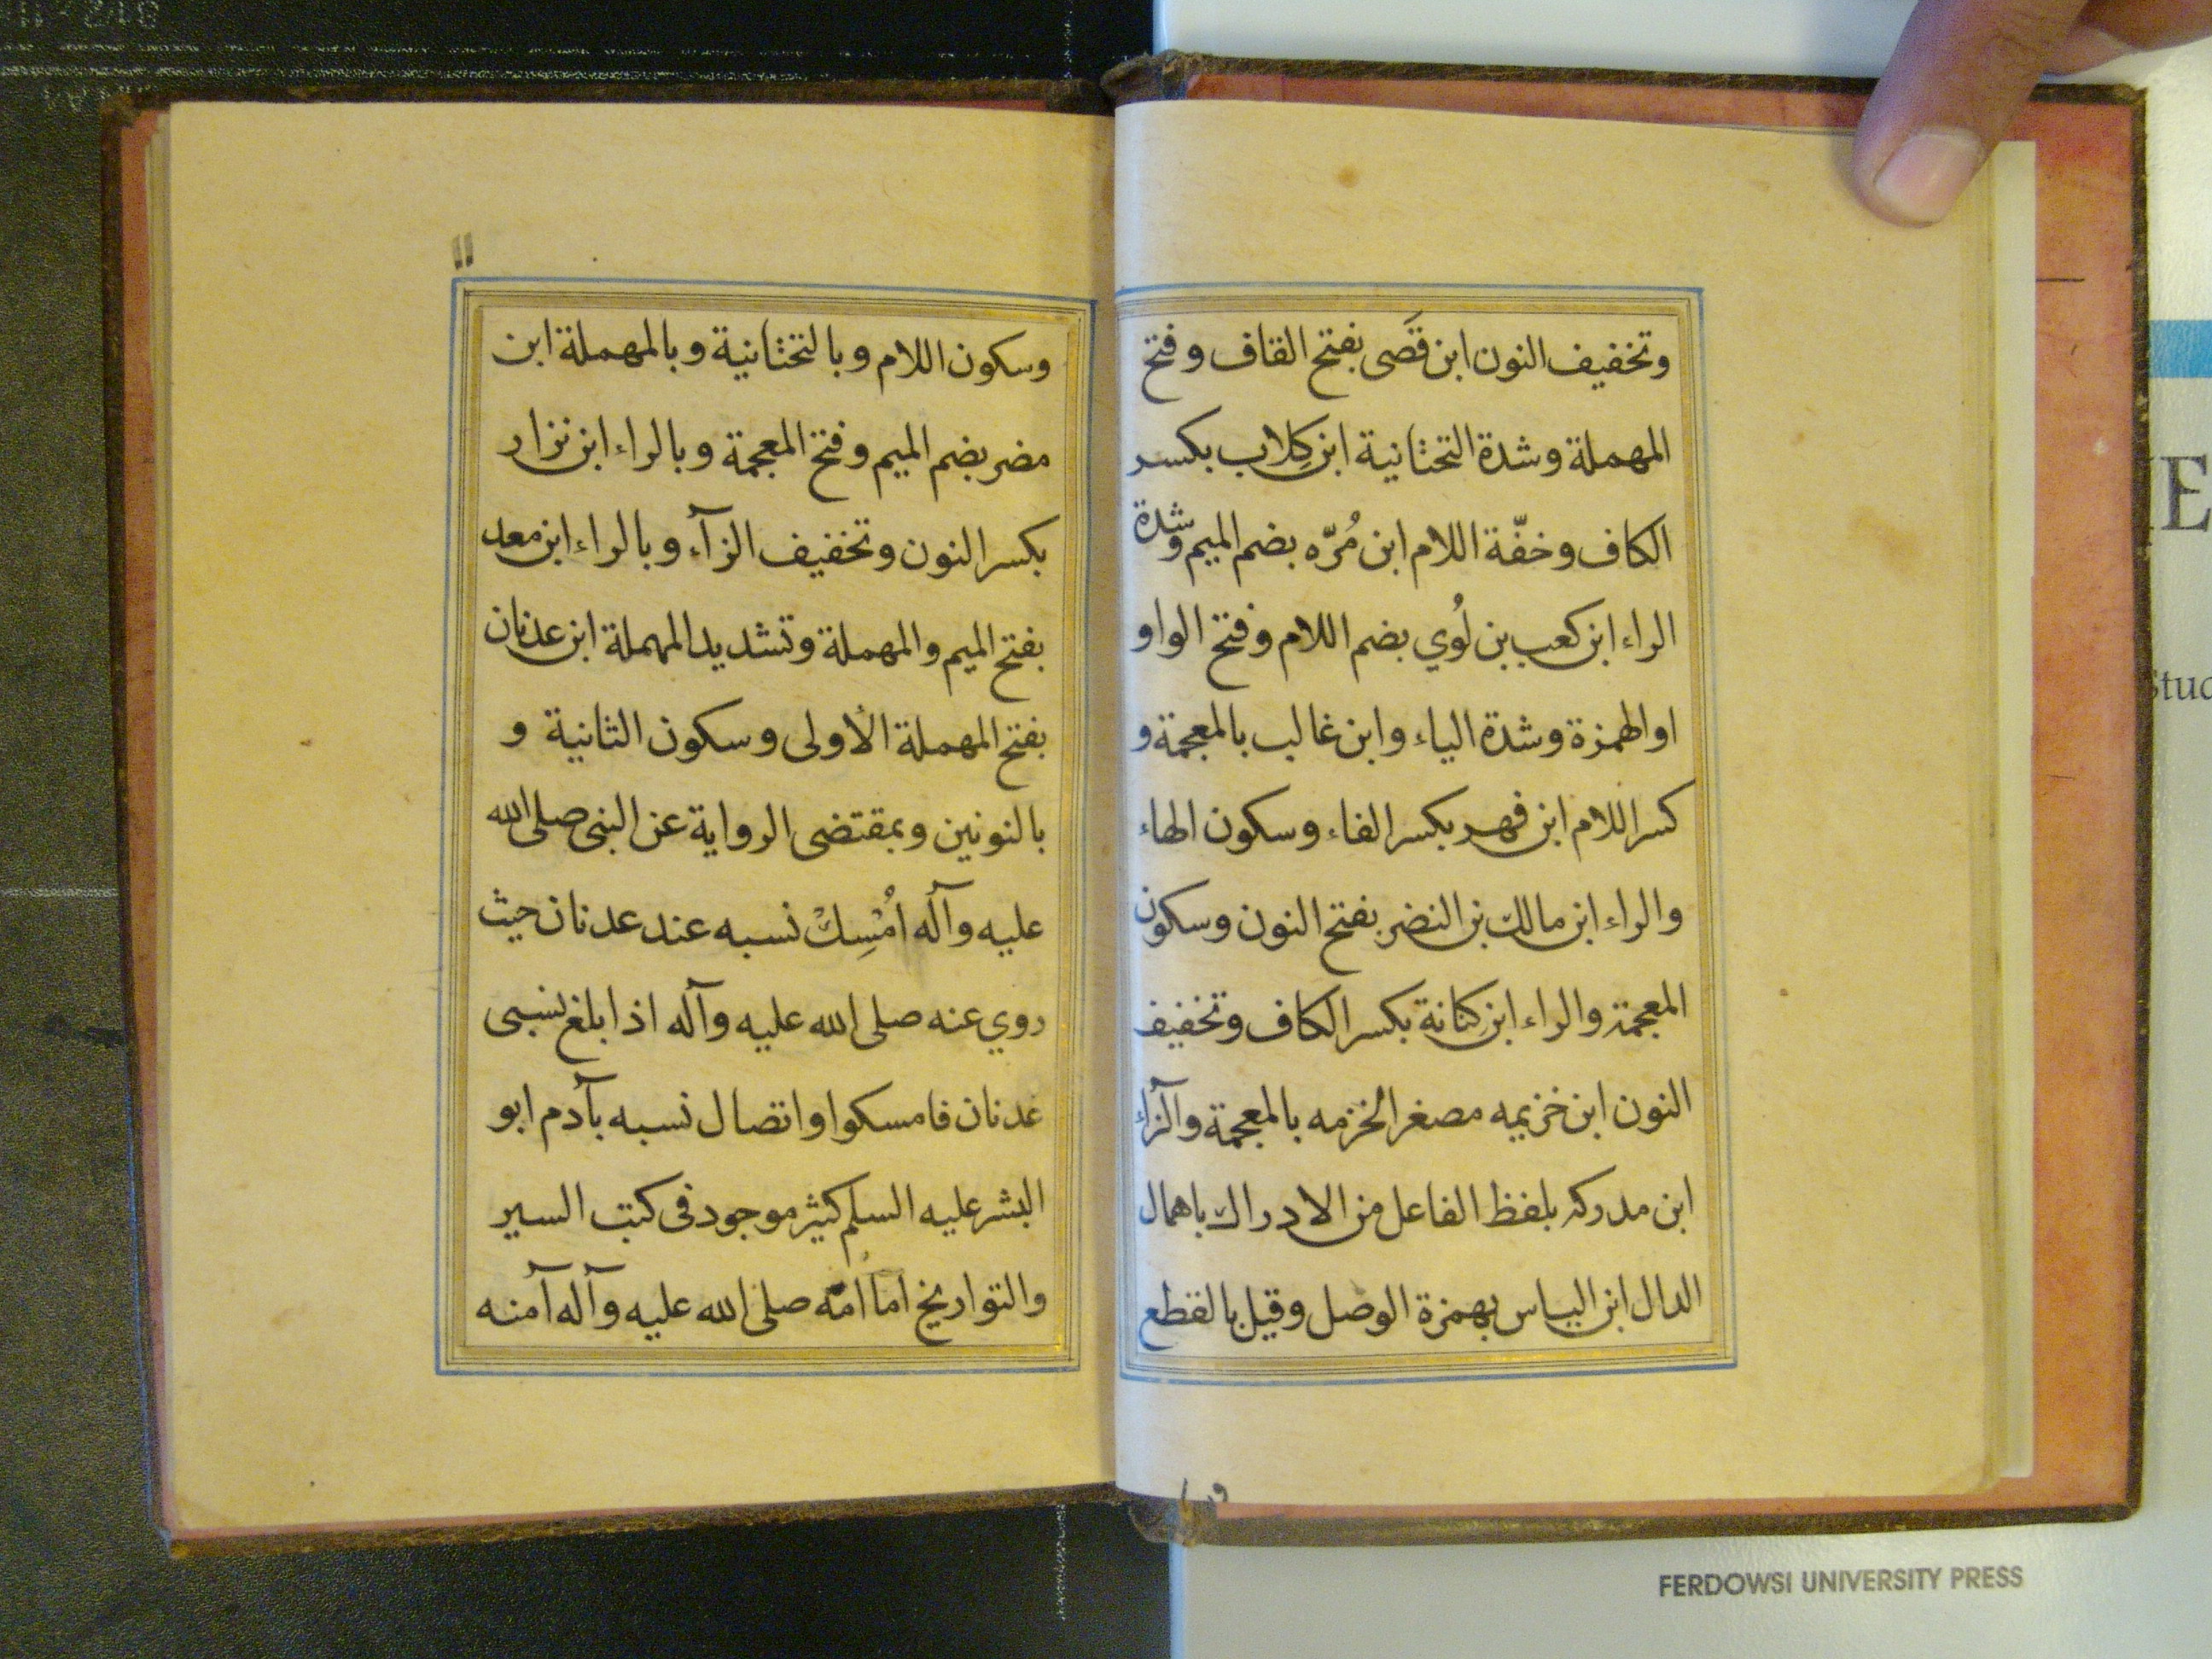 وتخفيف النون ابن قَصى بفتح القاف وفتح
المهملة وشدة التحتانية ابن كِلاب بكسر
الكاف وخفّة اللام ابن مُرّه بضم الميم وشدة
الراء ابن كعب بن لُوي بضم اللام وفتح الواو
او الهمزة وشدة الياء وابن غالب بالمعجمة و
كسر اللام ابن فهر بكسر الفاء وسكون الهاء
والراء ابن مالك بن النضر بفتح النون وسكون
المعجمة والراء ابن كنانة بكسر الكاف وتخفيف
النون ابن خزيمه مصغر الخزمه بالمعجمة والزآء
ابن مدركه بلفظ الفاعل من الادراك باهمال
الدال ابن الیاس بهمزة الوصل وقيل بالقطع
١١
وسكون اللام وبالتحتانية وبالمهملة ابن
مضر بضم الميم وفتح المعجمة وبالراء ابن نزار
بكسر النون وتخفيف الزآء وبالراء ابن معد
بفتح الميم والمهملة وتشديد المهملة ابن عدنان
بفتح المهملة الأولى وسكون الثانية و
بالنونين وبمقتضى الرواية عن النبى صلى الله
عليه وآله اُمْسِكْ نسبه عند عدنان حيث
روي عنه صلى الله عليه وآله اذا بلغ نسبى
عدنان فامسكوا واتصال نسبه بآدم ابو
البشر عليه السلم كثير موجود فى كتب السير
والتواريخ اما اُمّه صلى الله عليه وآله آمنه
FERDOWSI UNIVERSITY PRESS